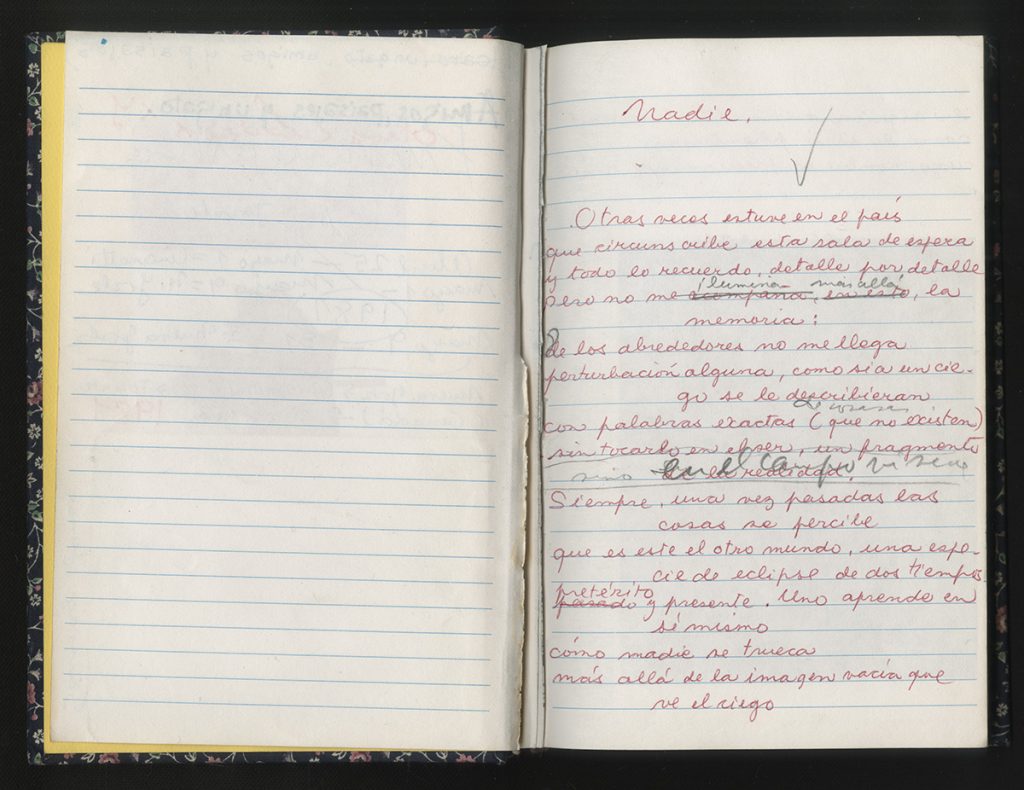 Nadie.
Otras veces estuve en el país
que circunscribe esta sala de espera
y todo lo recuerdo, detalle por detalle
ilumina más allá
pero no me acompaña, en esto, la
memoria:
de los alrededores no me llega
perturbación alguna, como si a un cie-
go se le describieran
cosas
con palabras exactas (que no existen)
sin tocarlo en el ser, un fragmento
sino en el campo
de la realidad.
Siempre, una vez pasadas las
cosas se percibe
que es este el otro mundo, una espe-
cie de eclipse de dos tiempos
pretérito
pasado y presente. Uno aprende en
sí mismo
cómo nadie se trueca
más allá de la imagen vacía que
ve el ciego